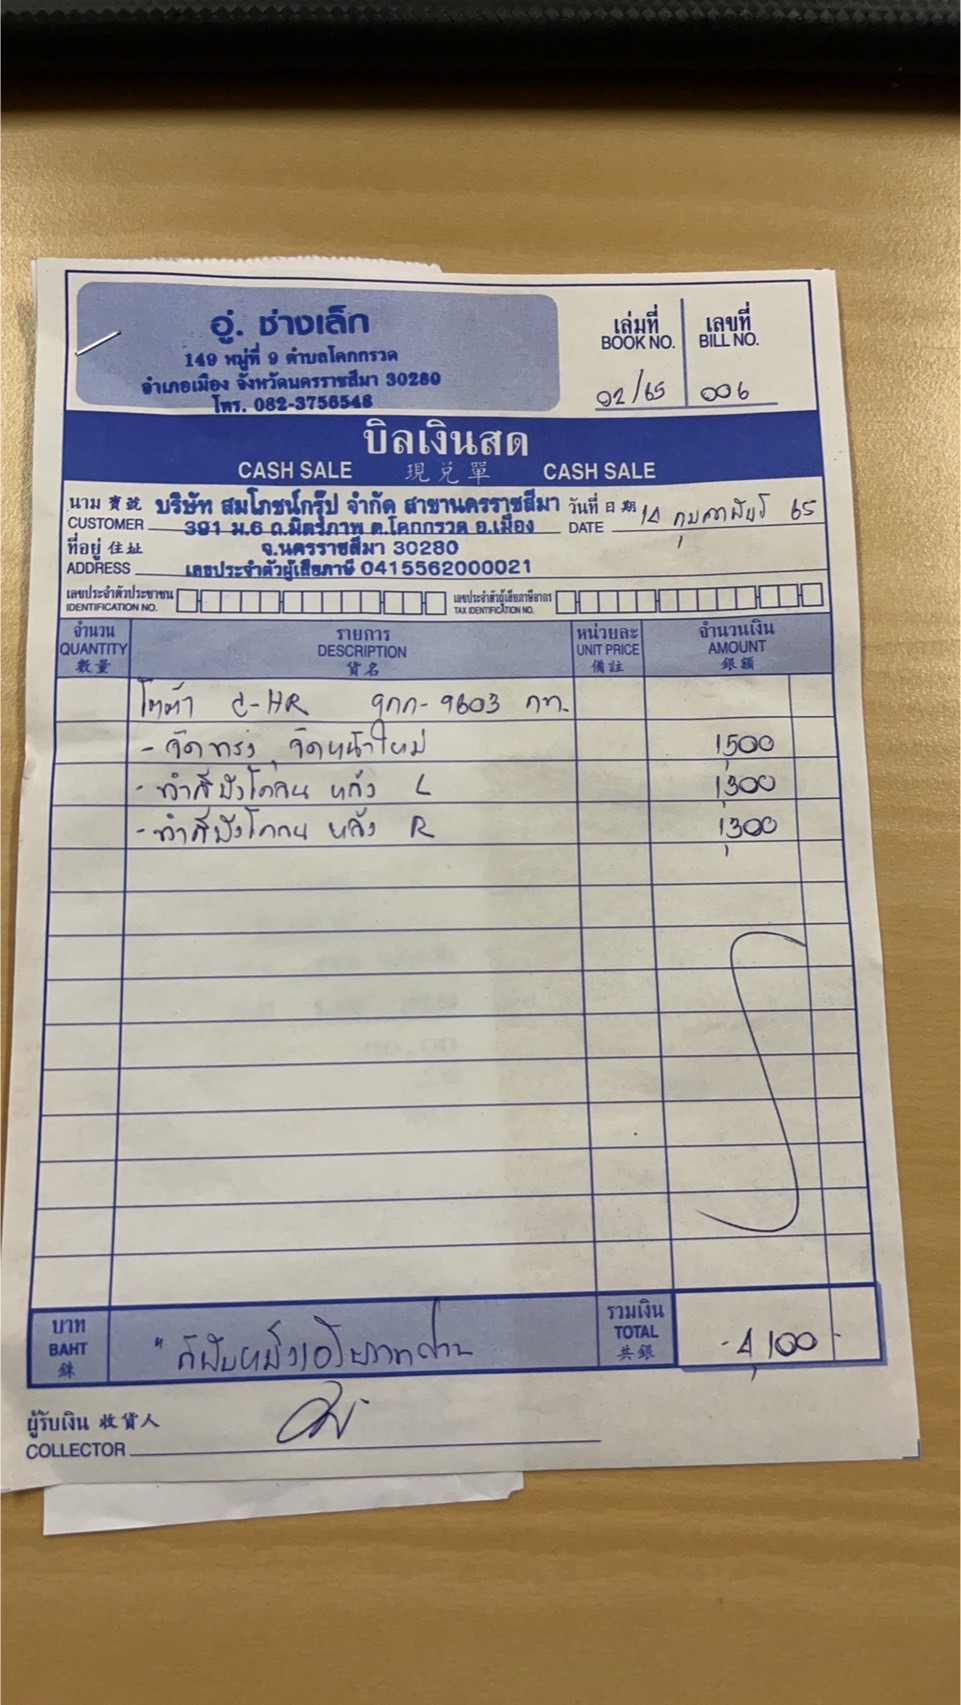 อู่. ช่างเล็ก
149 หมู่ที่ 9 ตำบลโคกกรวด
อำเภอเมือง จังหวัดนครราชสีมา 30280
โทร. 082-3756548
เล่มที่ เลขที่
BOOK NO. BILL NO.
02/65 006
บิลเงินสด
CASH SALE 現兌單 CASH SALE
นาม 寶號 บริษัท สมโภชน์กรุ๊ป จำกัด สาขานครราชสีมา วันที่ 日期 14 กุมภาพันธ์ 65
CUSTOMER 391 ม.6 ถ.มิตรภาพ ต.โคกกรวด อ.เมือง DATE
ที่อยู่ 住址 จ.นครราชสีมา 30280
ADDRESS เลขประจำตัวผู้เสียภาษี 0415562000021
เลขประจำตัวประชาชน เลขประจำตัวผู้เสียภาษีอากร
IDENTIFICATION NO. TAX IDENTIFICATION NO.
จำนวน รายการ หน่วยละ จำนวนเงิน
QUANTITY DESCRIPTION UNIT PRICE AMOUNT
數量 貨名 備註 銀額
C-HR 9กก-9603 กท.
- จัดทรง, จัดหน้าใหม่ 1,500
- ทำสีบังโคลน หลัง L 1,300
- ทำสีบังโคลน หลัง R 1,300
บาท รวมเงิน
BAHT " สี่พันหนึ่งร้อยบาทถ้วน TOTAL -4,100 -
銖 共銀
ผู้รับเงิน 收貨人
COLLECTOR